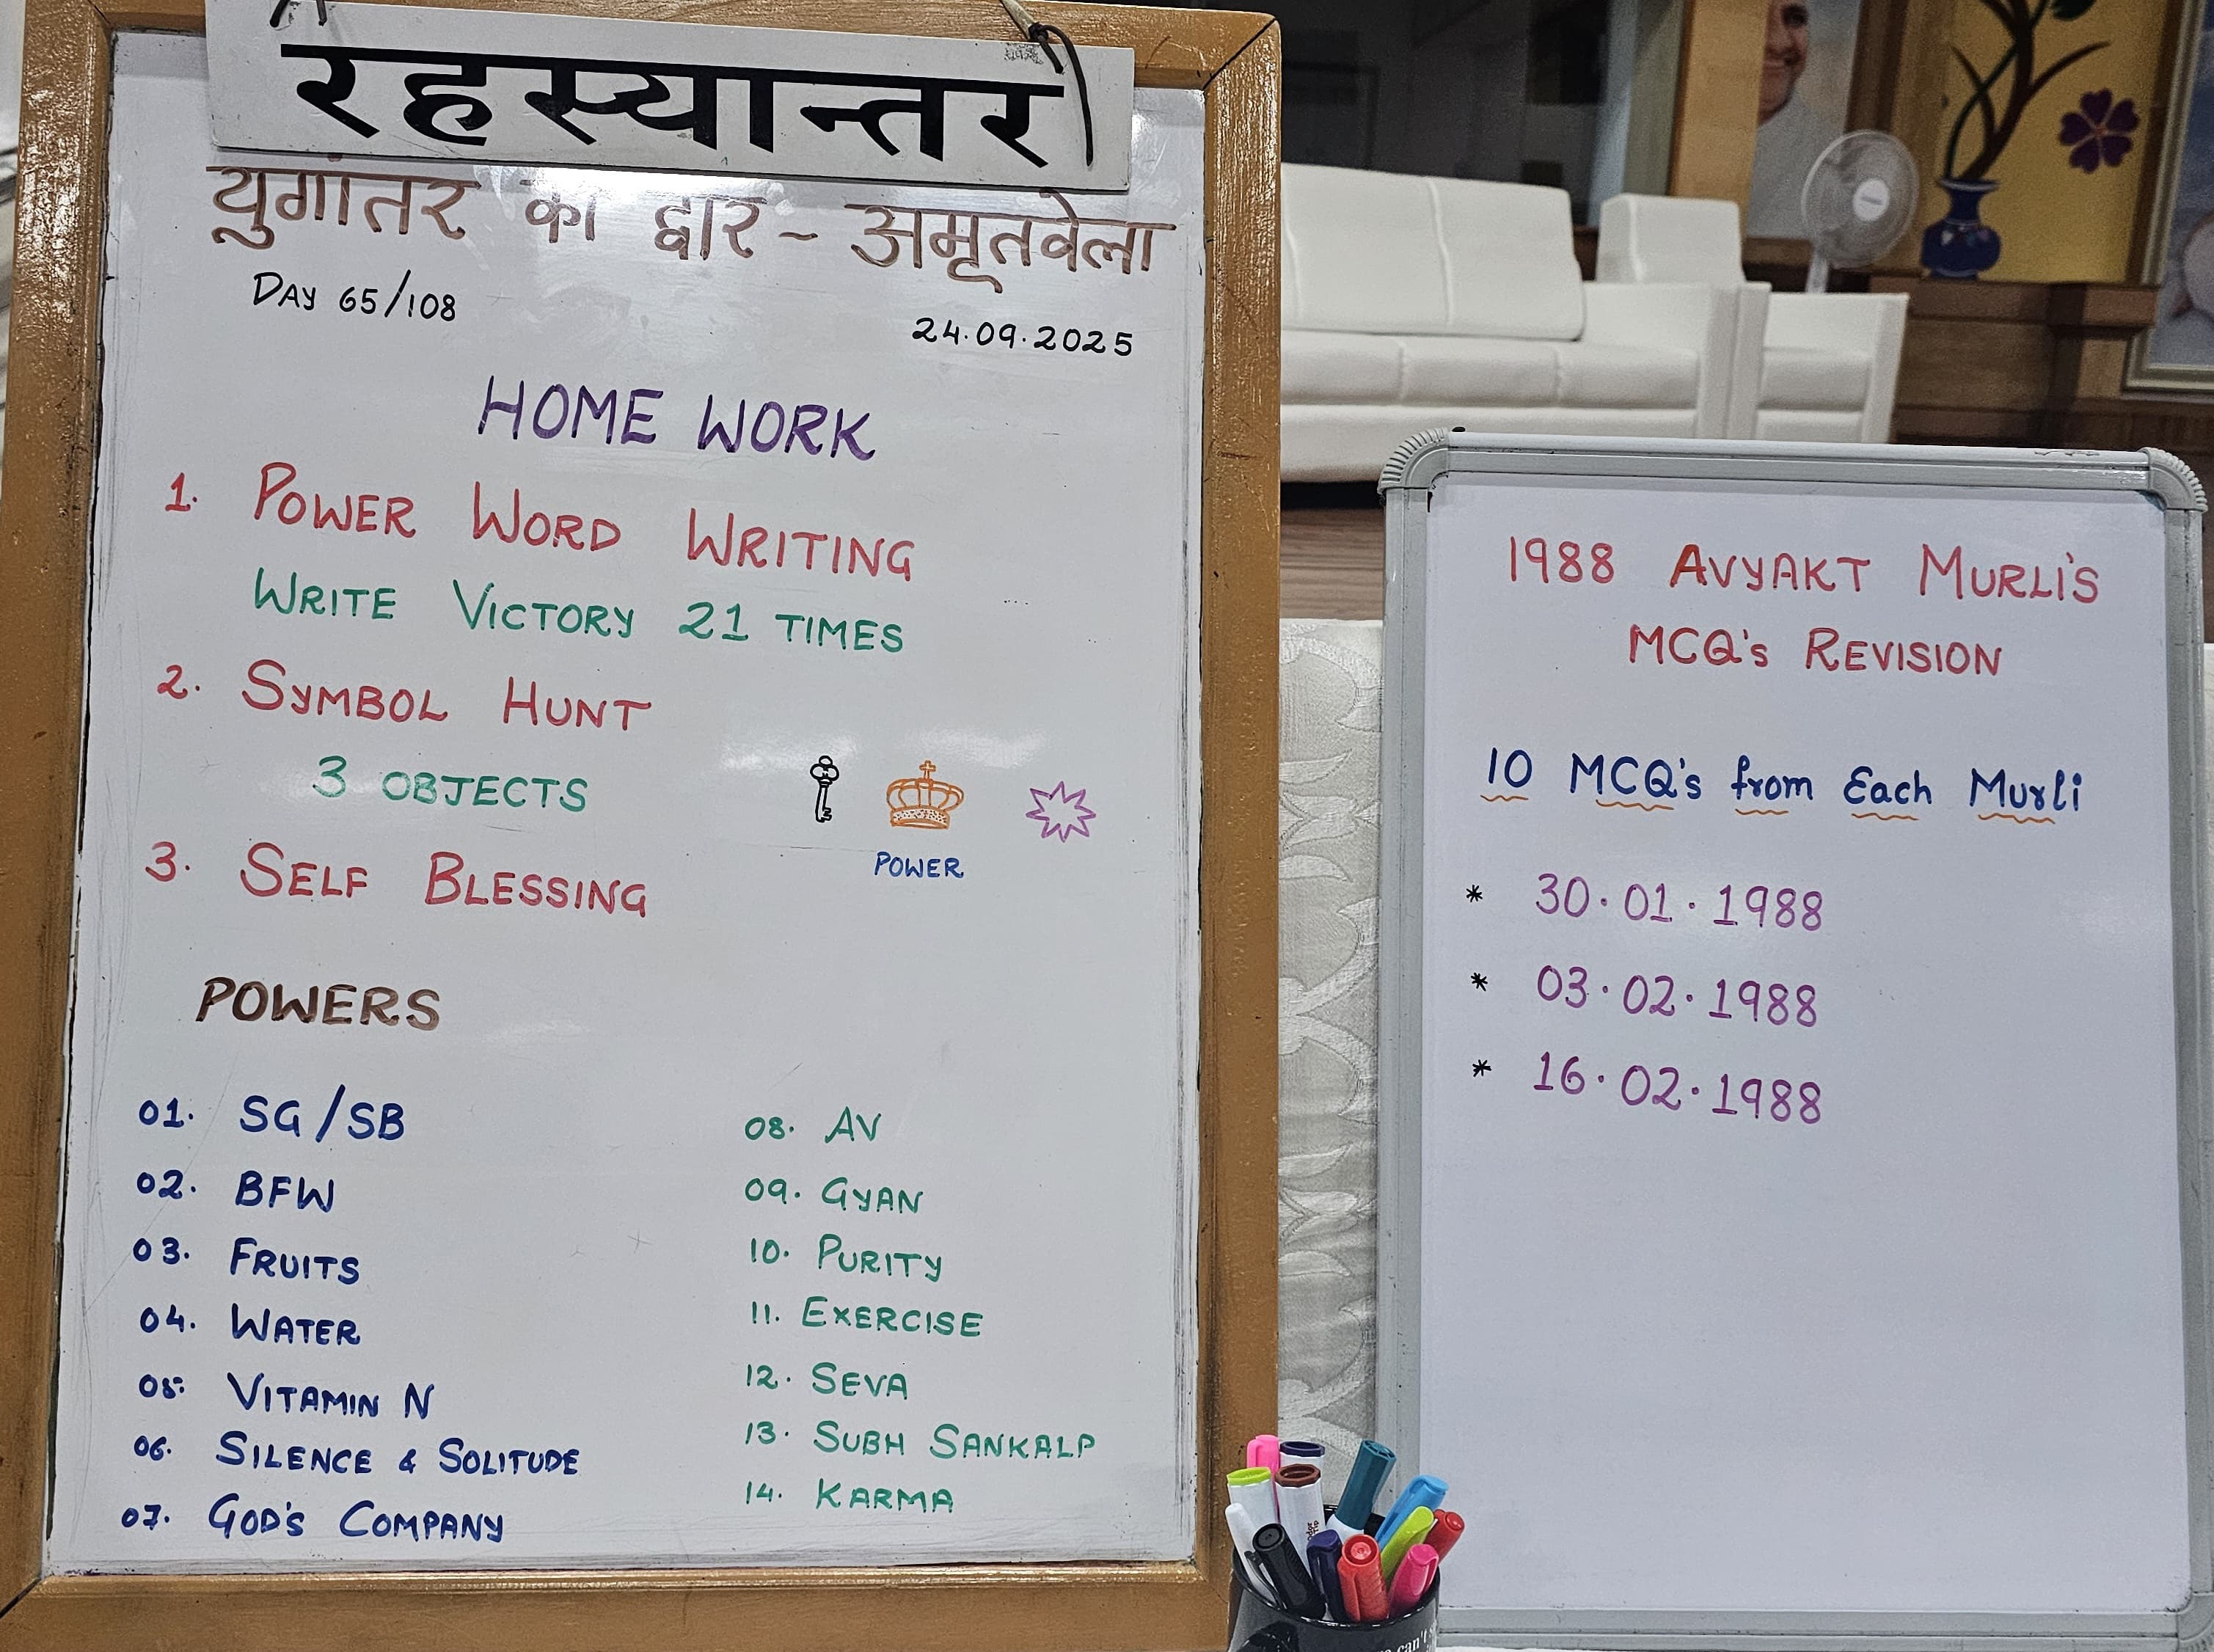 रहस्यान्तर
युगांतर का द्वार - अमृतवेला
DAY 65/108
24.09.2025
HOME WORK
1. POWER WORD WRITING
WRITE VICTORY 21 TIMES
2. SYMBOL HUNT
3 OBJECTS
POWER
3. SELF BLESSING
POWERS
01. SG/SB
02. BFW
03. FRUITS
04. WATER
05. VITAMIN N
06. SILENCE & SOLITUDE
07. GOD'S COMPANY
08. AV
09. GYAN
10. PURITY
11. EXERCISE
12. SEVA
13. SUBH SANKALP
14. KARMA
1988 AVYAKT MURLI'S
MCQ's REVISION
10 MCQ's from Each Murli
* 30.01.1988
* 03.02.1988
* 16.02.1988
can't